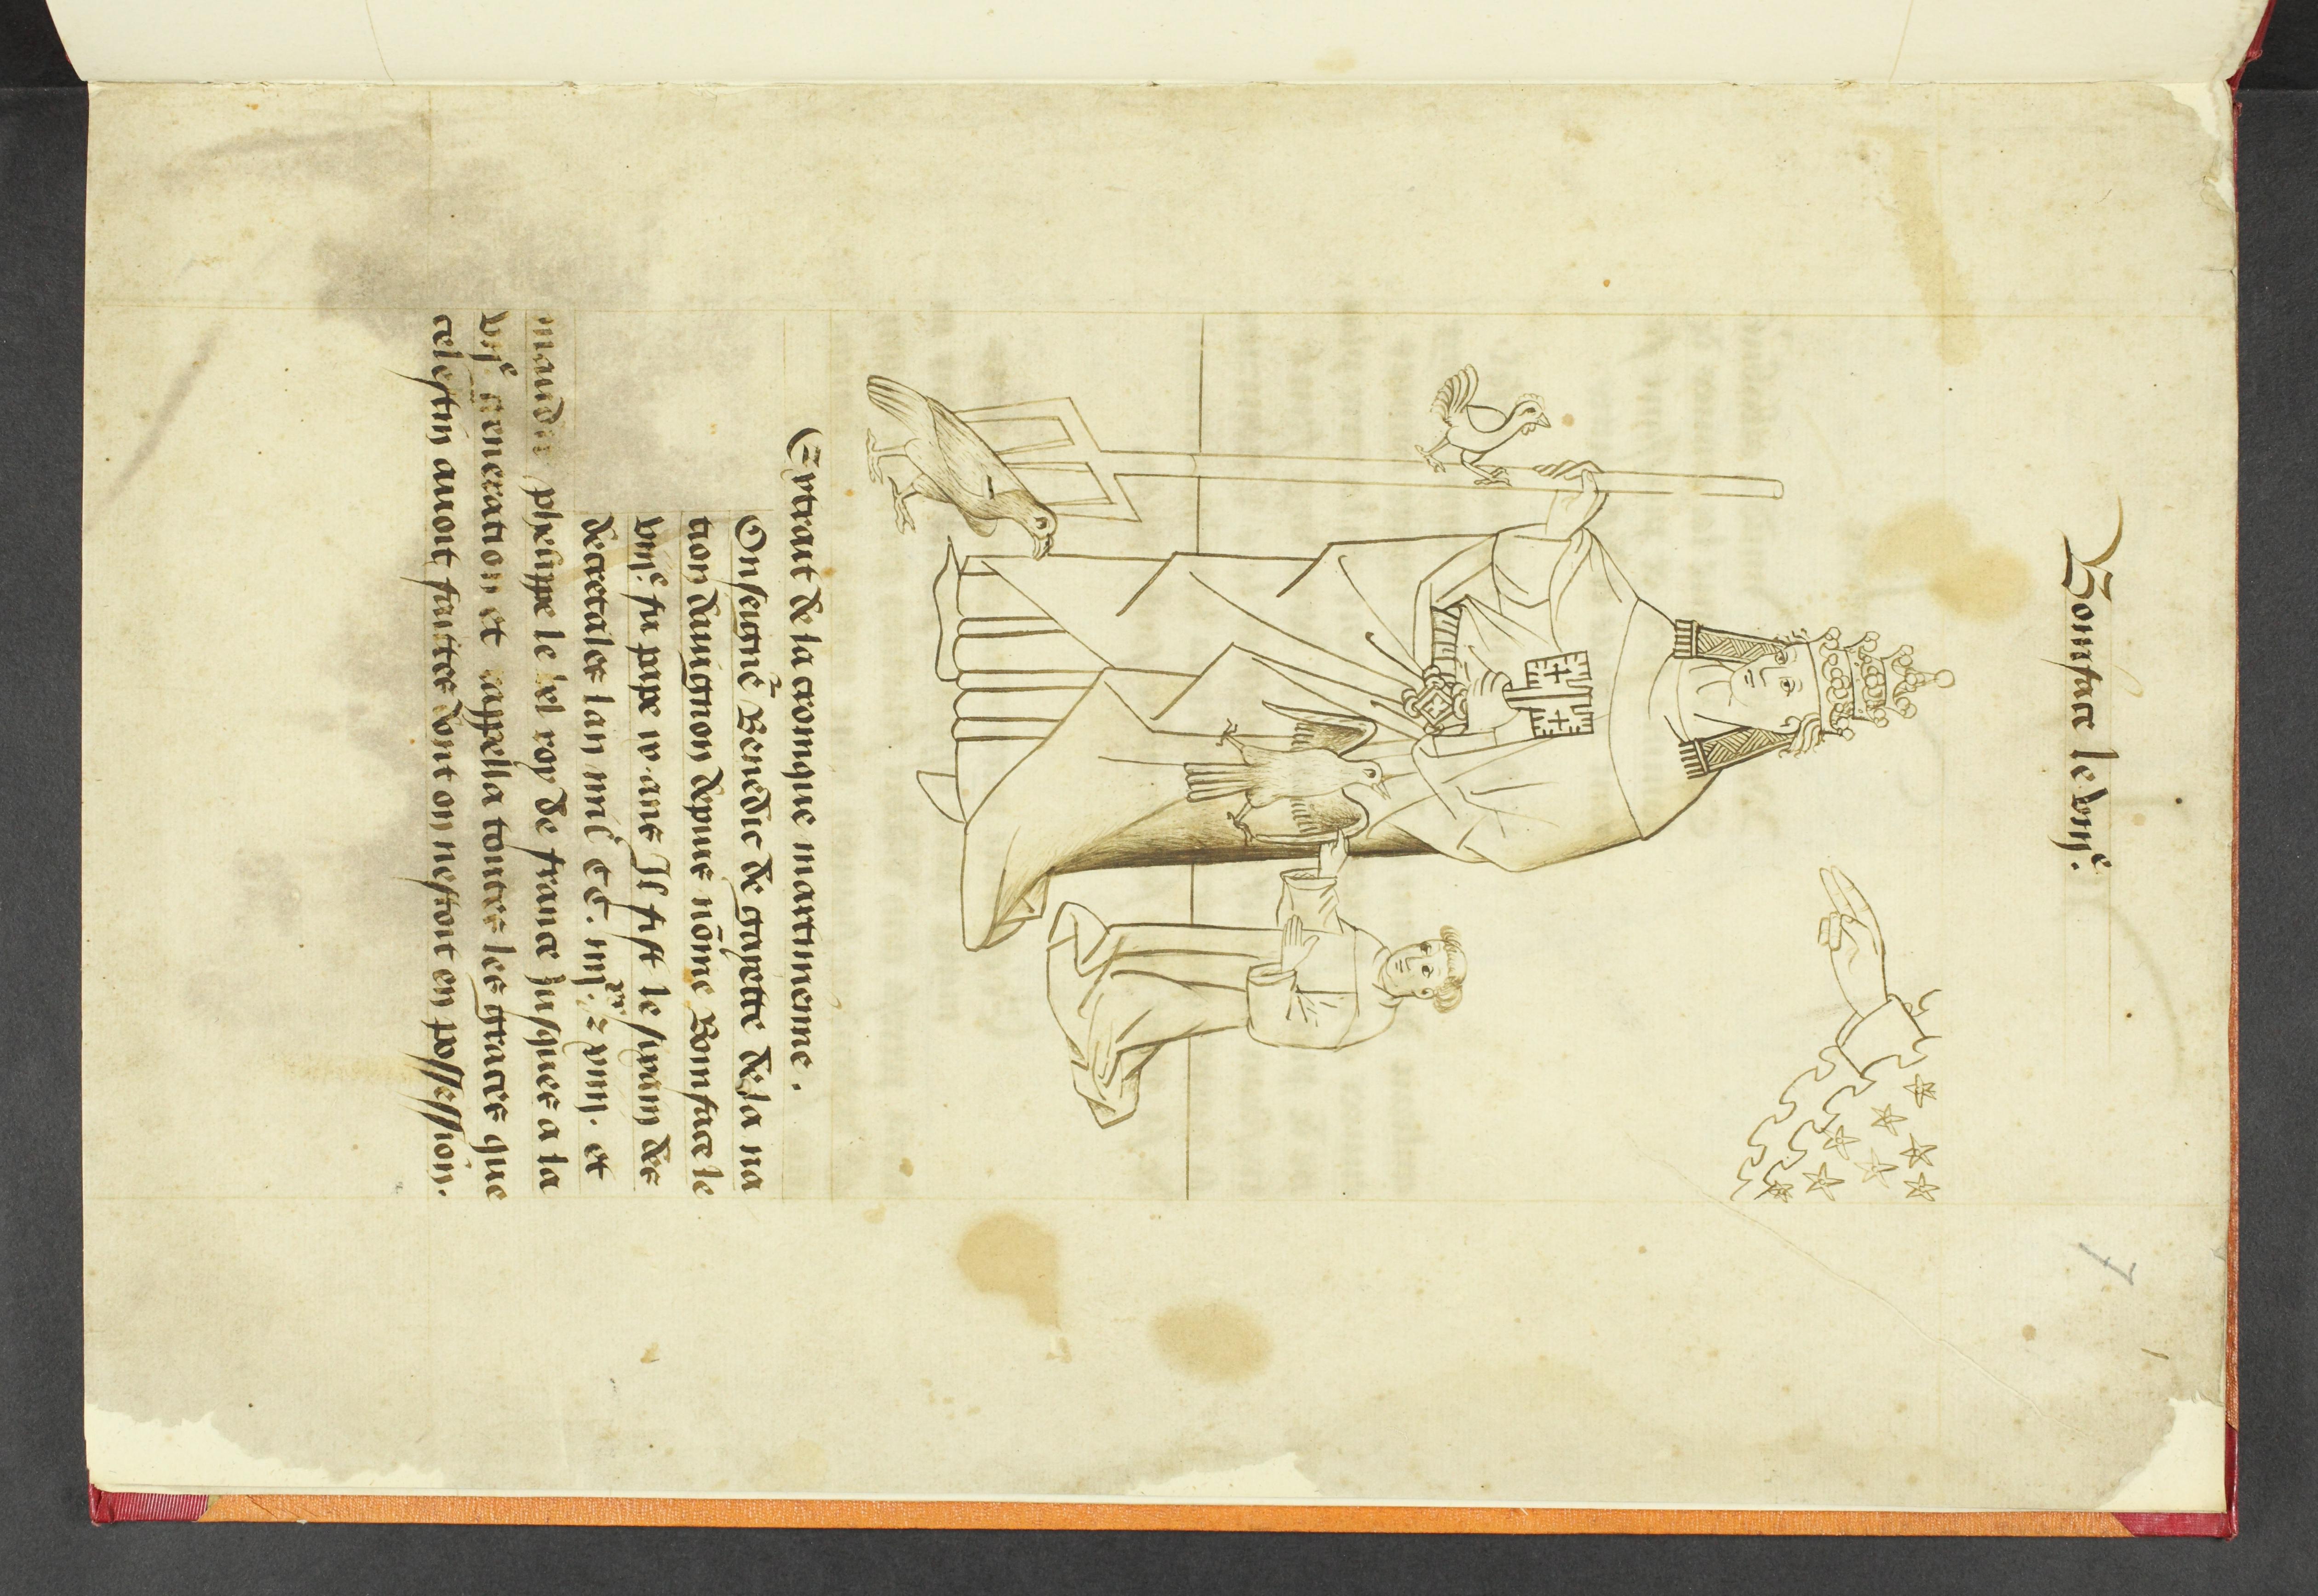 Boniface le viij^e.
7
Extrait de la cronique martinienne.
Onseigne^r Benedic de gayette de la na
tion dauignon depuis nōme Boniface le
viij^e. fu pape ix ans Il fist le sixain des
decretales lan mil CC. iiij^xx. z xviij. et
manda phelippe le bel roy de france jusques a la
vij^e generation et rappella toutes les graces que
celestin auoit faittes dont on nestoit en possession.